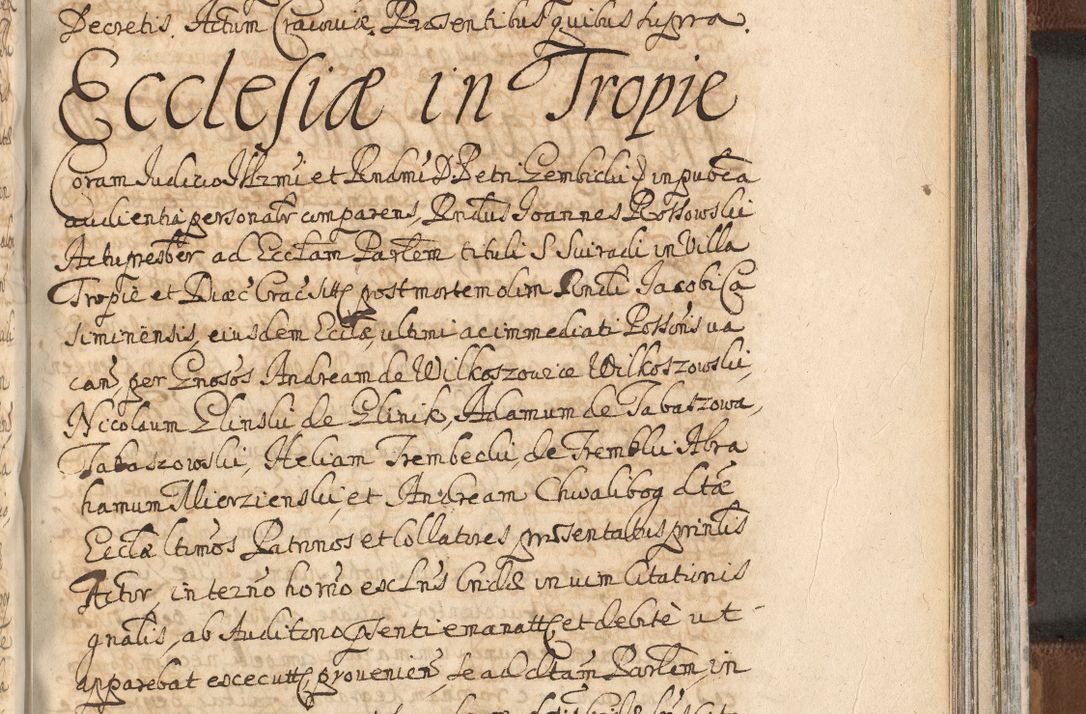 Decretis. Actum Cracoviæ, Præsentibus quibus supra.
Ecclesiæ in Tropie
Coram Judicio Illrmi et Rndmi D. Petri Gembicki E in pubca
audientia personalr comparens, Rndus Joannes Rossowski
Actu presbter ad Ecclam Parlem tituli S Suiradi in Villa
Tropie et Diæc Crac sittt post mortem olim Rndi Jacobi Ca
siminensis, eiusdem Ecclæ, ultimi ac immediati Possoris va
can, per Gnosos Andream de Wilkoszovice Wilkoszowski,
Nicolaum Glinski de Glinik, Adamum de Tabaszowa,
Tabaszowski, Heliam Trembecki, de Trembki Abra
hamum Mierzienski, et Andream Chwalibog dtæ
Ecclæ ltimos Patronos et Collatores præsentatus prinlis
Actor, in termo horno exclns Cridæ in vim Citationis
gnalis, ab Auditorio psenti emanattt et debitè ut
apparebat executtt provenien, se ad dtam Parlem, in